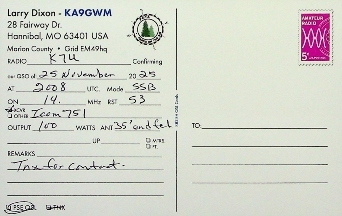 Larry Dixon - KA9GWM
28 Fairway Dr.
Hannibal, MO 63401 USA
Marion County • Grid EM49hq
RADIO K7U Confirming
our QSO of 25 November 2025
AT 2008 UTC. Mode SSB
ON 14. MHz RST 53
XCVR
OTHER Icom 751
OUTPUT 100 WATTS ANT 35' end fed
UP WTRS
FT.
REMARKS
Tnx for contact.
PSE QSL TNX
AMATEUR
RADIO
5¢
TO: